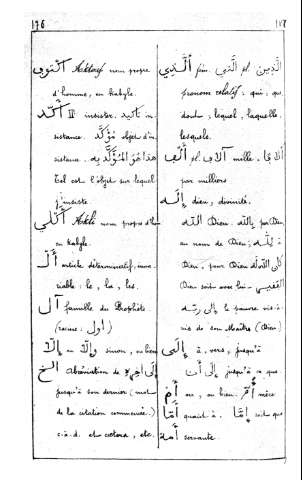 176
اكتوف Aktouf nom propre
d'homme, en kabyle.
أكّد II insister. تأكيد in-
sistance. مؤكّد objet d'in-
sistance. هذا هو المؤكّد به
Tel est l'objet sur lequel
j'insiste
اكلي Akli nom propre d'h.
en kabyle.
ال article déterminatif, inva-
riable : le, la, les.
آل famille du Prophète.
(racine : اول)
الّا — والّا sinon, ou bien
الخ Abréviation de الى آخره
jusqu'à son dernier (mot
de la citation commencée.)
c.à.d. et cœtera, etc.
الّذي fém. الّتي pl. الّذين
pronom relatif : qui, que
dont, lequel, laquelle,
lesquels.
ألف pl. آلاف mille.
par milliers
إله dieu, divinité.
الله Dieu. بالله par Dieu,
au nom de Dieu; لله à
Dieu, pour Dieu
Dieu soit avec lui
الى ربّه le pauvre vis-à-
vis de son Maître (Dieu)
إلى à, vers, jusqu'à
الى أن jusqu'à ce que
أم ou, ou bien. mère
أمّا quant à. إمّا soit que
أمة servante.